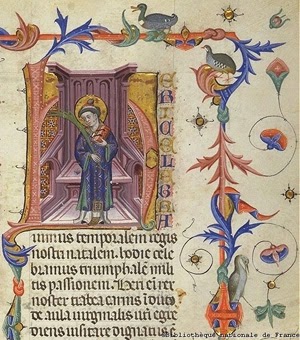 HERI CELEBRA
uimus temporalem regis
nostri natalem. hodie cele
bramus triumphalem mili
tis passionem. Heri ei rex
noster trabea carnis idutus
de aula virginalis uti egre
diens visitare dignatus e
©Bibliothèque nationale de France